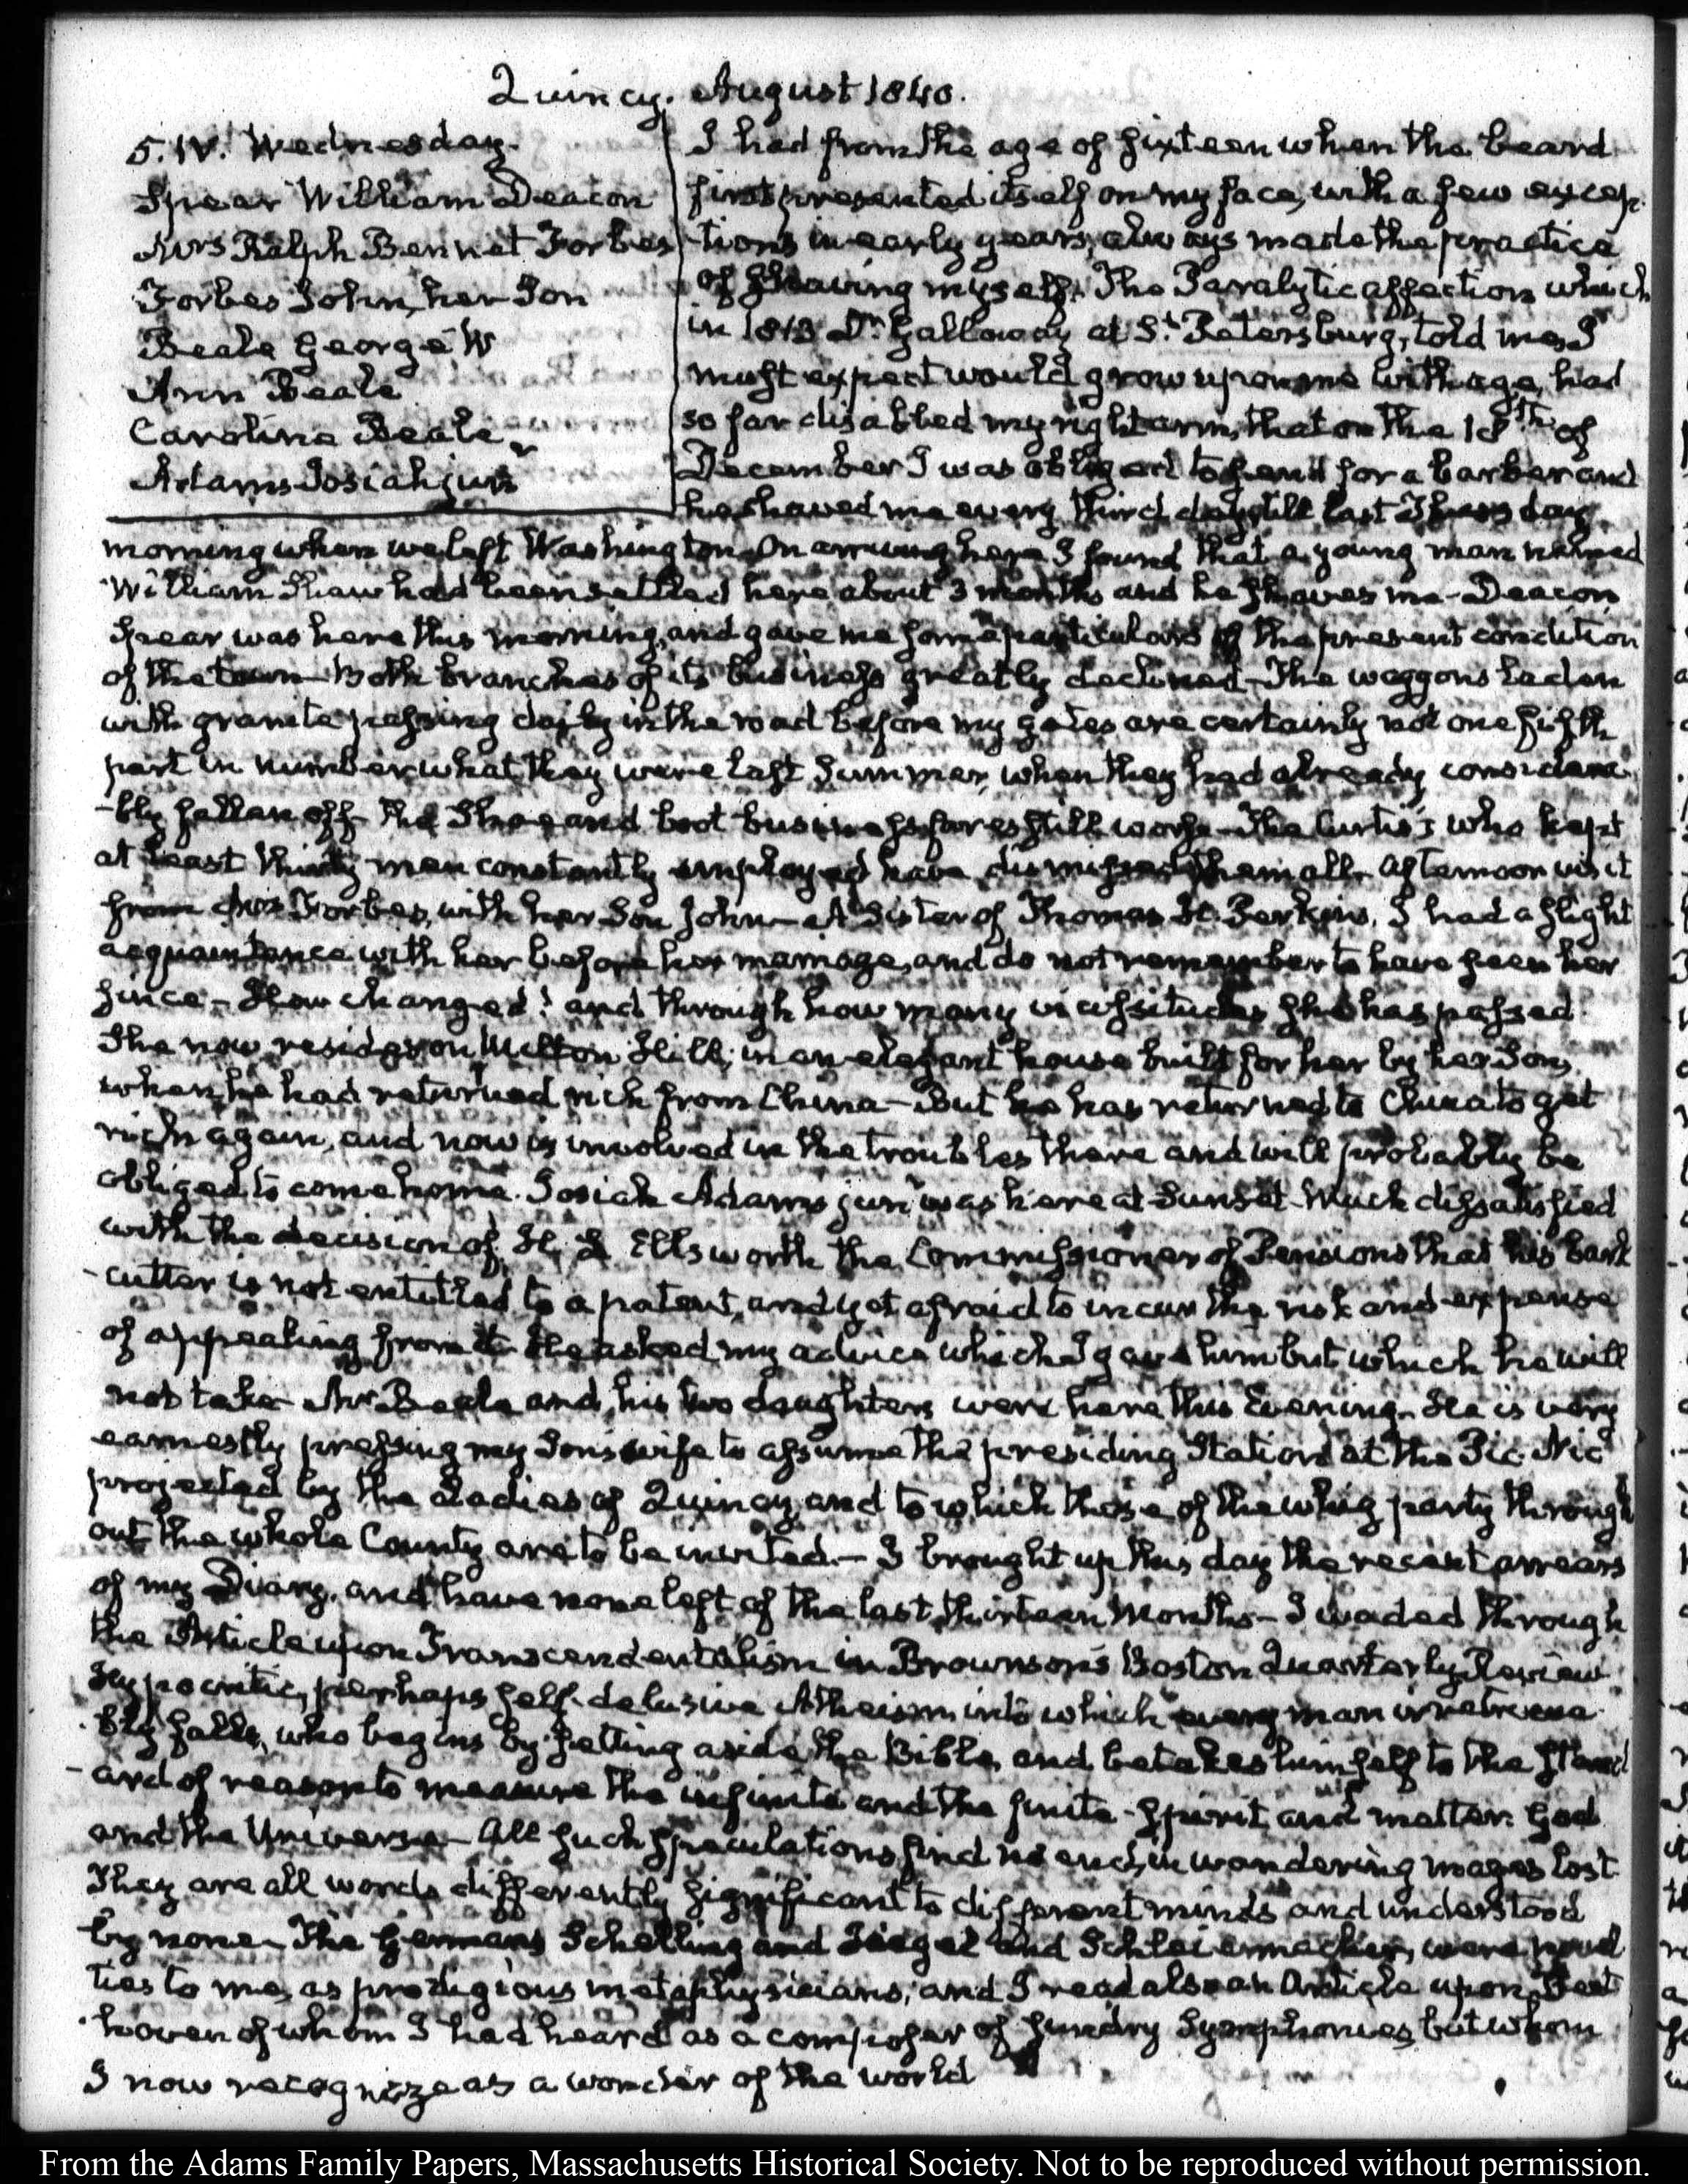 Quincy. August 1840.
5. IV. Wednesday.
Spear William Deacon
Mrs Ralph Bennet Forbes
Forbes John, her Son
Beale George W
Ann Beale
Caroline Beale
Adams Josiah junr
I had from the age of sixteen when the beard
first presented itself on my face, with a few excep-
tions in early years, always made the practice
of shaving myself. The Paralytic affection which
in 1813 Dr. Galloway at St. Petersburg, told me, I
must expect would grow upon me with age, had
so far disabled my right arm, that on the 18th of
December I was obliged to send for a barber and
he shaved me every third day till last Thursday
morning when we left Washington. On arriving here I found that a young man named
William Shaw had been settled here about 3 months and he shaves me - Deacon
Spear was here this morning, and gave me some particulars of the present condition
of the town - Both branches of its business greatly declined - The waggons laden
with granite passing daily in the road before my gates are certainly not one fifth
part in number, what they were last Summer, when they had already considera-
-bly fallen off - The Shoe and boot business fares still worse - The Curtis's who kept
at least thirty men constantly employed have dismissed them all - Afternoon visit
from Mrs Forbes, with her Son John - A Sister of Thomas H. Perkins. I had a slight
acquaintance with her before her marriage, and do not remember to have seen her
since - How changed! and through how many vicissitudes she has passed
She now resides on Milton Hill; in an elegant house built for her by her Son,
when he had returned rich from China - But he has returned to China to get
rich again, and now is involved in the troubles there and will probably be
obliged to come home. Josiah Adams junr was here at Sunset - Much dissatisfied
with the decision of H. L. Ellsworth the Commissioner of Pensions that his bark
-cutter is not entitled to a patent, and yet afraid to incur the risk and expense
of appealing from it. He asked my advice which I gave him but which he will
not take - Mr Beale and his two daughters were here this Evening - He is very
earnestly pressing my Son's wife to assume the presiding Station at the Pic-Nic
projected by the Ladies of Quincy and to which those of the whig party through
out the whole County are to be invited. - I brought up this day the recent arrears
of my Diary, and have none left of the last thirteen Months - I waded through
the Article upon Transcendentalism in Brownson's Boston Quarterly Review
Hypocritic, perhaps self-delusive Atheism, into which every man irretrieva
-bly falls, who begins by setting aside the Bible, and betakes himself to the stand
-ard of reason to measure the infinite and the finite - Spirit and matter. God
and the Universe - All such speculations find no end, in wandering mazes lost
They are all words differently significant to different minds and understood
by none - The Germans Schelling and and Schleiermacher, were novel
ties to me, as prodigious metaphysicians; and I read also an Article upon Beet
-hoven of whom I had heard as a composer of sundry Symphonies, but whom
I now recognize as a wonder of the world
From the Adams Family Papers, Massachusetts Historical Society. Not to be reproduced without permission.